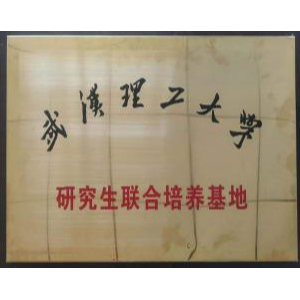 武漢理工大學
研究生联合培养基地